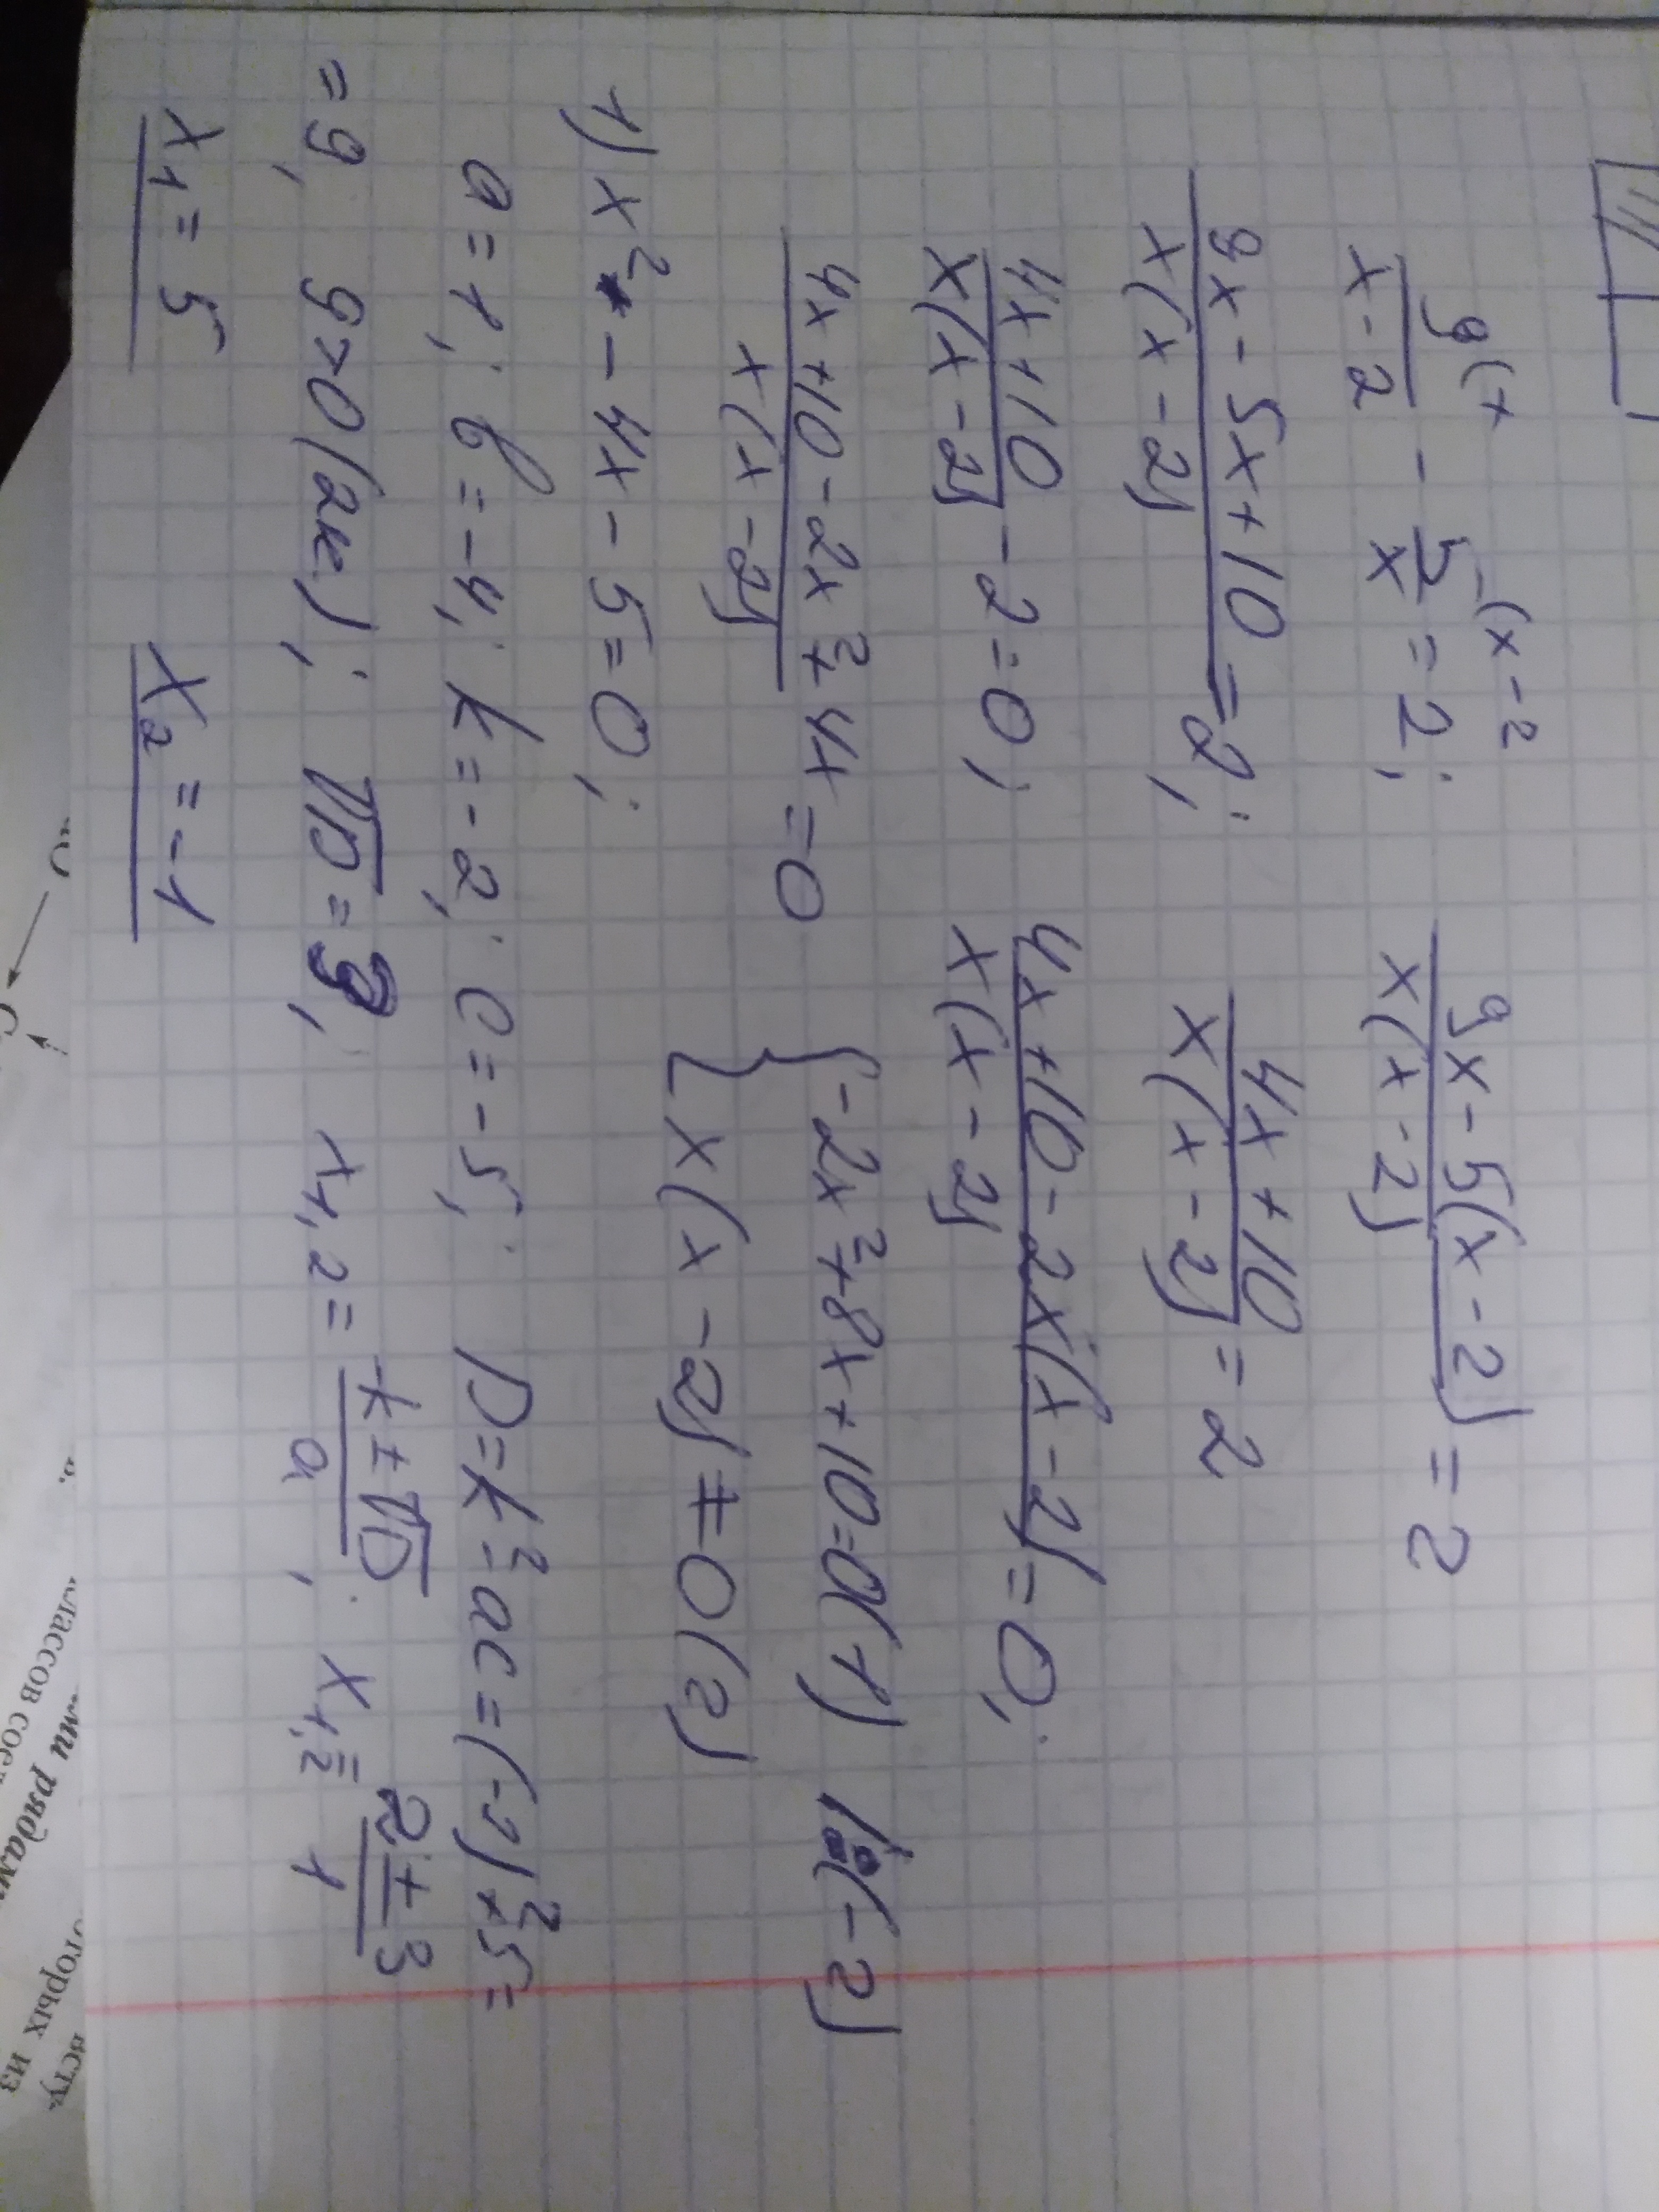 9(x -(x-2
9/(x-2) - 5/x = 2; (9x-5(x-2))/(x(x-2)) = 2
(9x-5x+10)/(x(x-2)) = 2; (4x+10)/(x(x-2)) = 2
(4x+10)/(x(x-2)) - 2 = 0; (4x+10-2x(x-2))/(x(x-2)) = 0;
(4x+10-2x²+4x)/(x(x-2)) = 0 { -2x²+8x+10=0 (1) |:(-2)
x(x-2) ≠ 0 (2)
1) x² - 4x - 5 = 0;
a = 1; b = -4; k = -2; c = -5; D = k² - ac = (-2)² + 5 =
= 9; 9>0 (2к.); √D = 3; x1,2 = (-k ± √D)/a; x1,2 = (2 ± 3)/1
x1 = 5 x2 = -1
ми рядами
классов сос
оторых из